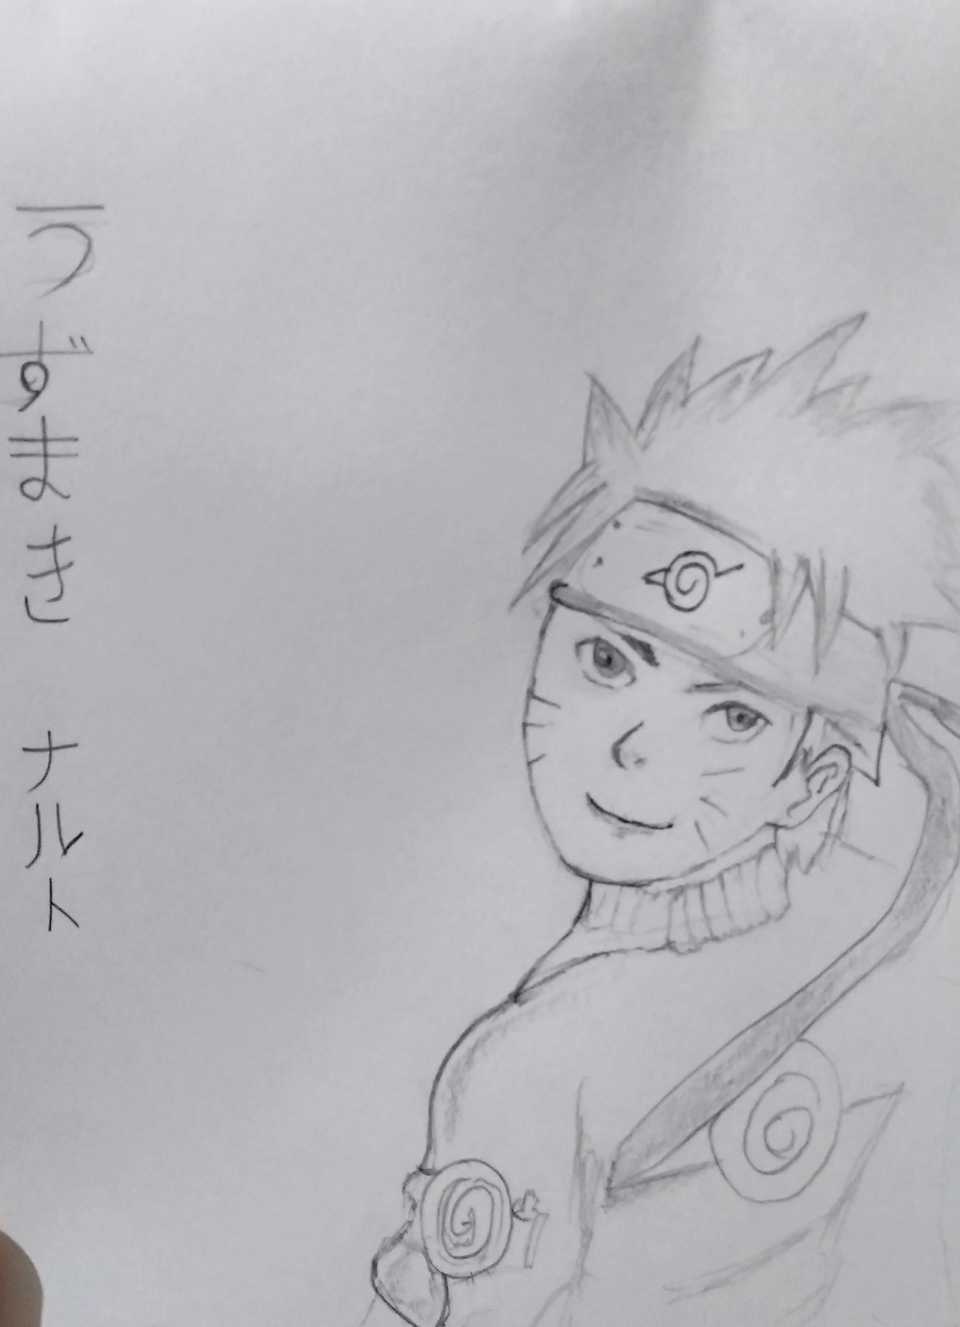 うずまき ナルト